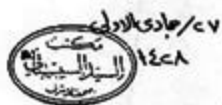 ٢٧/جمادى الاولى
١٤٢٨
مكتب
السيد السيستاني